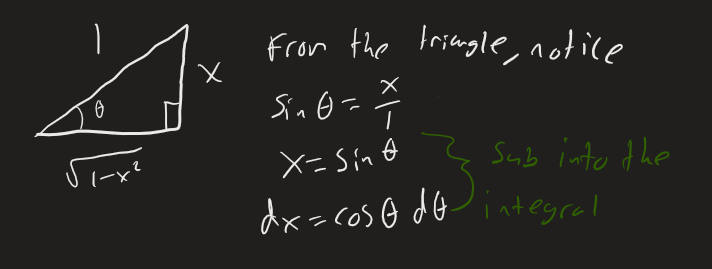 1
x
θ
√1-x²
From the triangle, notice
sin θ = x/1
x = sin θ
dx = cos θ dθ
sub into the
integral